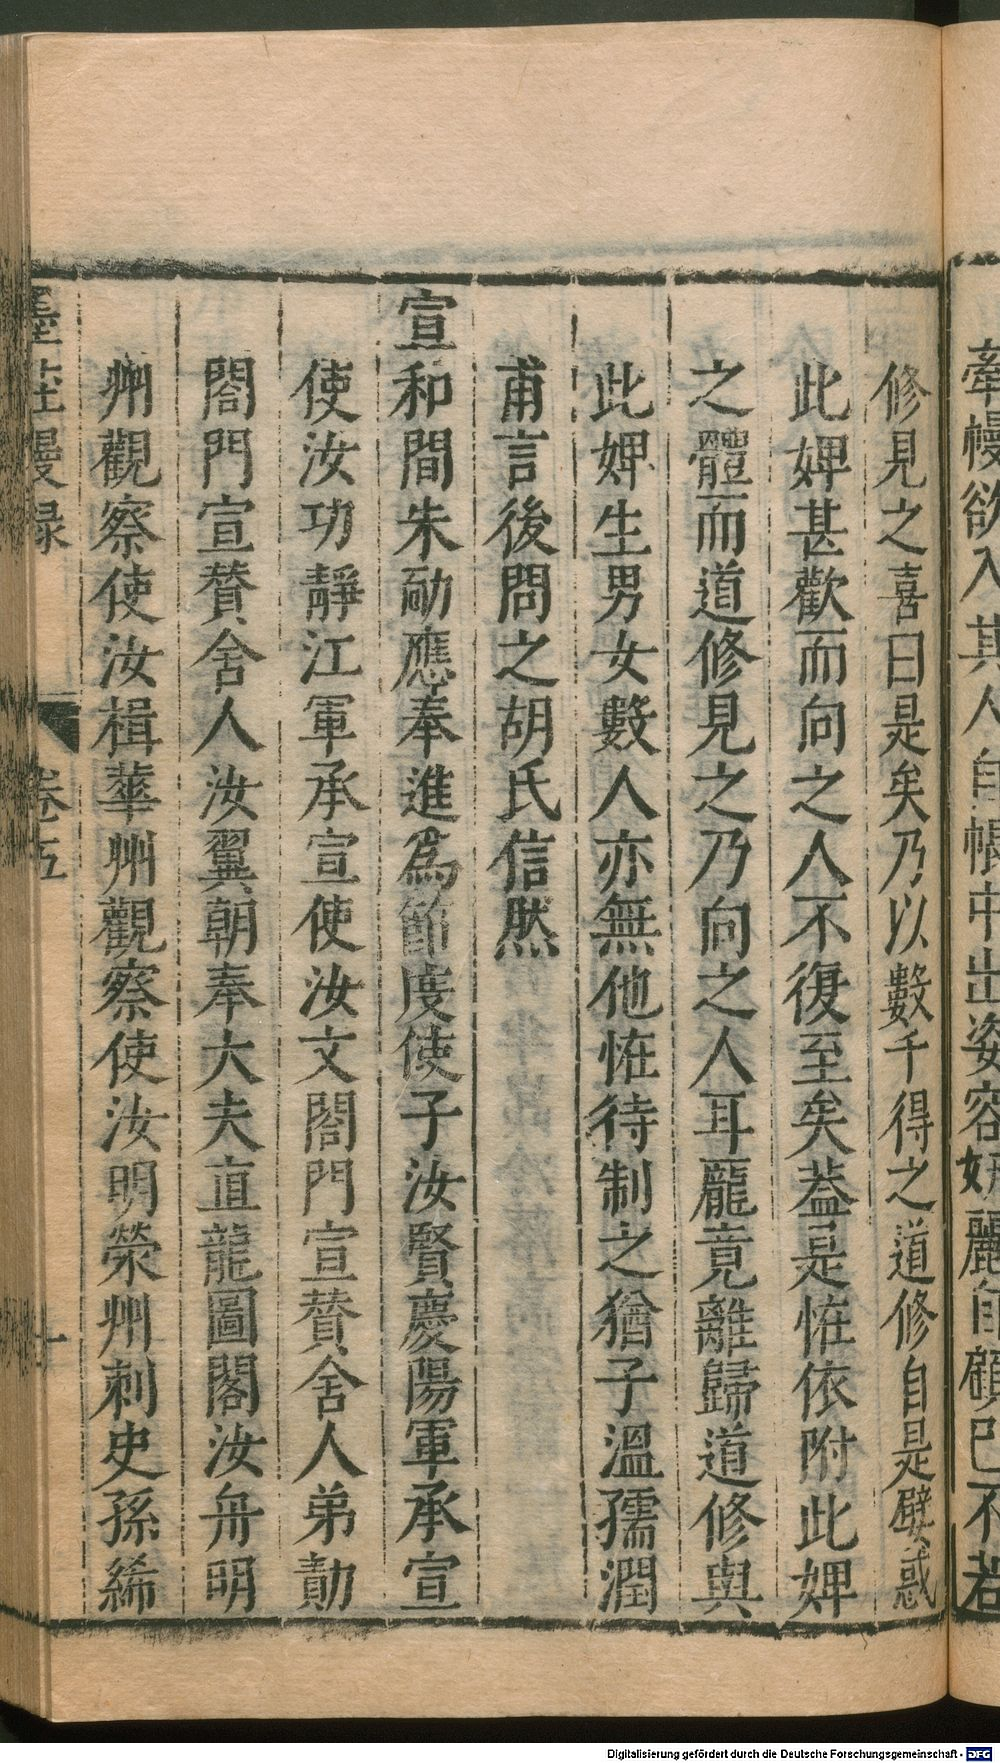 牽幔欲入其人自帳中出姿容妍麗自顧已不若
修見之喜曰是矣乃以數千得之道修自是嬖惑
此婢甚歡而向之人不復至矣蓋是恠依附此婢
之體而道修見之乃向之人耳龐竟離歸道修與
此婢生男女數人亦無他恠待制之猶子溫孺潤
甫言後問之胡氏信然
宣和間朱勔應奉進爲節度使子汝賢慶陽軍承宣
使汝功靜江軍承宣使汝文閤門宣賛舍人弟勣
閤門宣賛舍人汝翼朝奉大夫直龍圖閣汝舟明
州觀察使汝楫華州觀察使汝明滎州刺史孫絺
墨莊漫録 卷五 十
Digitalisierung gefördert durch die Deutsche Forschungsgemeinschaft - DFG